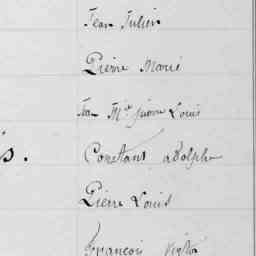 Jean Julien
Pierre Marie
Jean Mie pierre Louis
s. Constant adolphe
Pierre Louis
françois